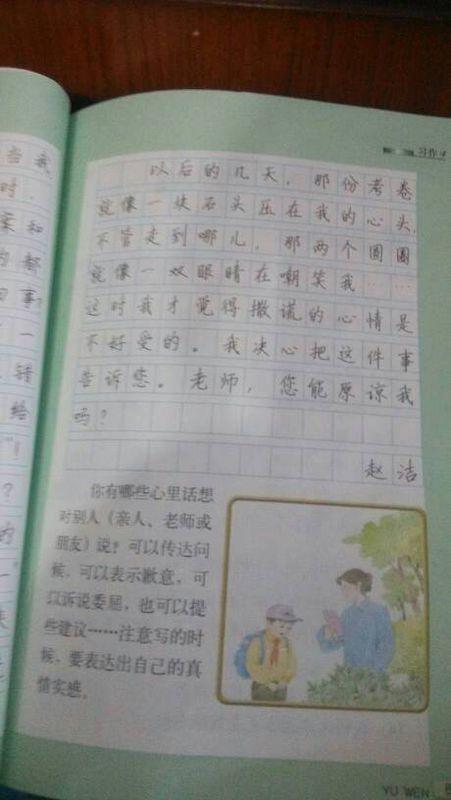 当我
时，
案和
的都
事?
一
转
给
"!
?
的
一
习作4
以后的几天，那份考卷
就像一块石头压在我的心头，
不管走到哪儿，那两个圆圈
就像一双眼睛在嘲笑我……
这时我才觉得撒谎的心情是
不好受的。我决心把这件事
告诉您。老师，您能原谅我
吗?
赵洁
你有哪些心里话想
对别人（亲人、老师或
朋友）说？可以传达问
候，可以表示歉意，可
以诉说委屈，也可以提
些建议……注意写的时
候，要表达出自己的真
情实感。
YU WEN